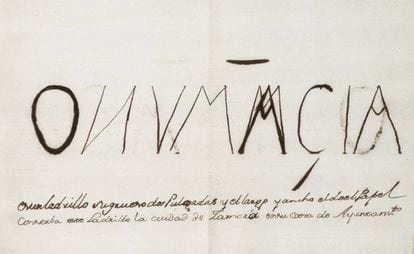 ONVMĀÇIA
en un ladrillo su grueso dos Pulgadas y el largo y ancho el de el Papel
Conserba este Ladrillo la ciudad de Zamora en su casa de Ayuntamto